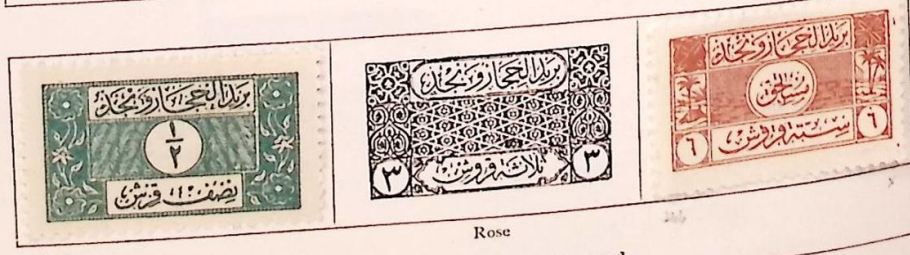 بريد الحجاز ونجد
١/٢
نصف قرش
بريد الحجاز ونجد
٣ ٣
ثلاثة قروش
Rose
بريد الحجاز ونجد
٦ ٦
ستة قروش